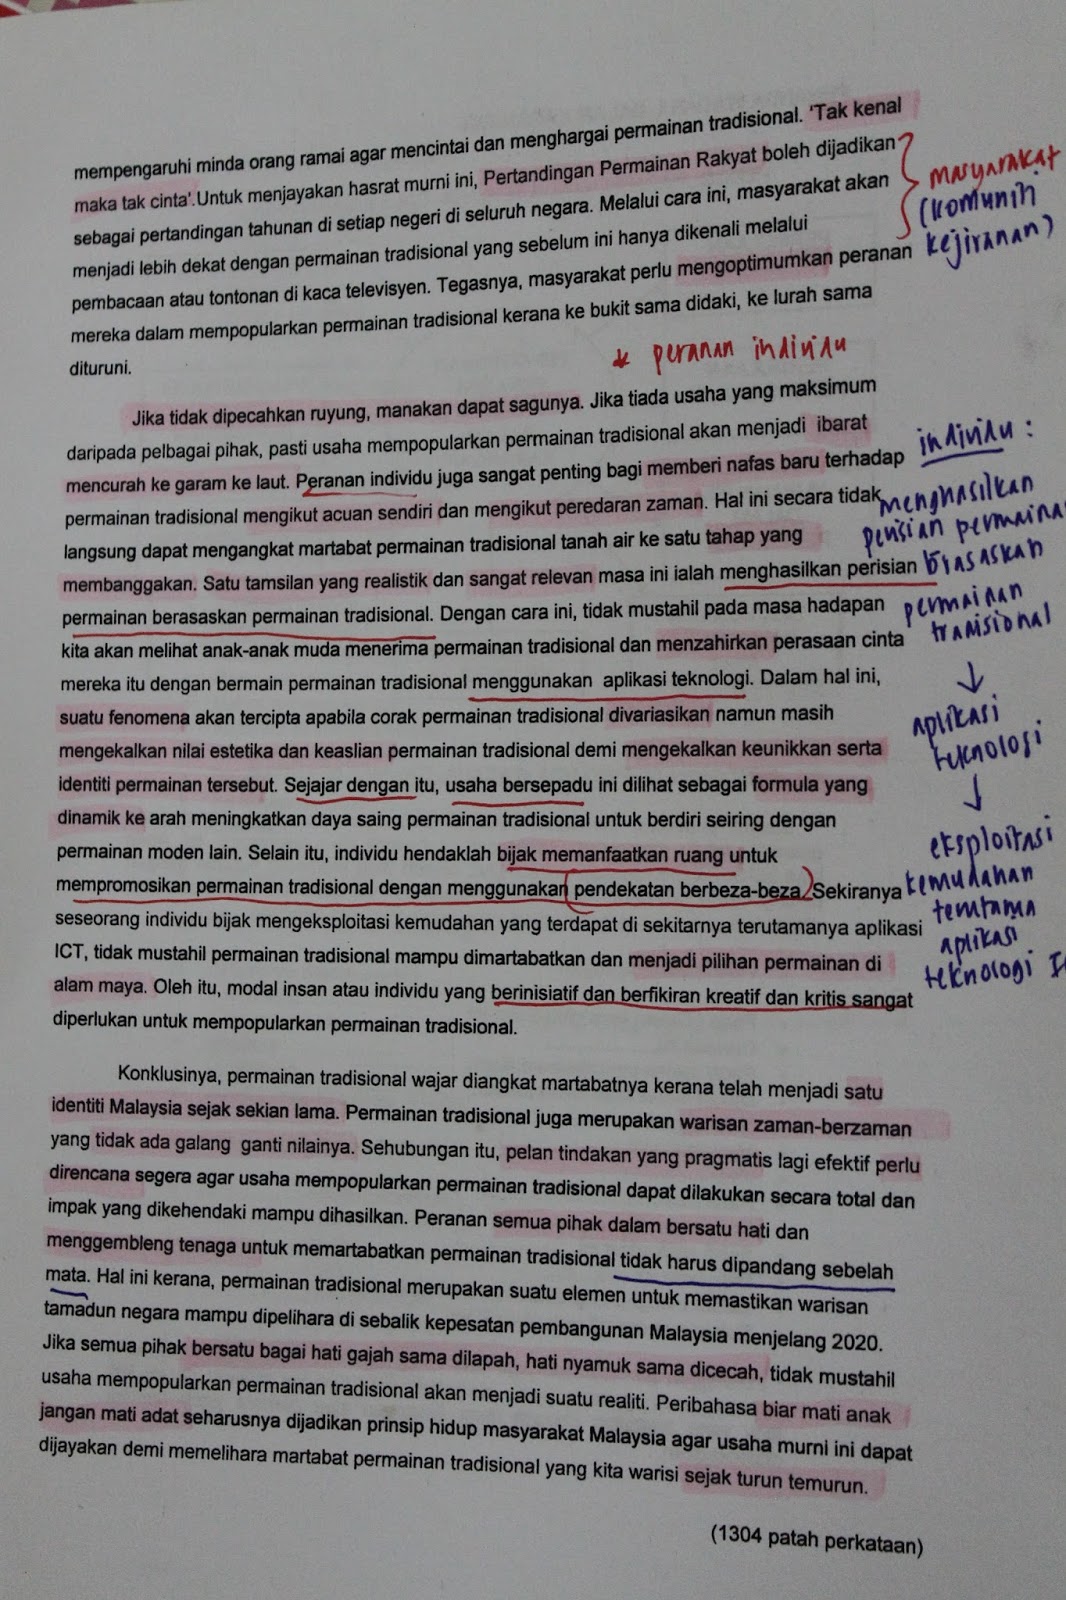 mempengaruhi minda orang ramai agar mencintai dan menghargai permainan tradisional. 'Tak kenal
maka tak cinta'.Untuk menjayakan hasrat murni ini, Pertandingan Permainan Rakyat boleh dijadikan
sebagai pertandingan tahunan di setiap negeri di seluruh negara. Melalui cara ini, masyarakat akan
menjadi lebih dekat dengan permainan tradisional yang sebelum ini hanya dikenali melalui
pembacaan atau tontonan di kaca televisyen. Tegasnya, masyarakat perlu mengoptimumkan peranan
mereka dalam mempopularkan permainan tradisional kerana ke bukit sama didaki, ke lurah sama
dituruni.
masyarakat
(komuniti
kejiranan)
* peranan individu
Jika tidak dipecahkan ruyung, manakan dapat sagunya. Jika tiada usaha yang maksimum
daripada pelbagai pihak, pasti usaha mempopularkan permainan tradisional akan menjadi ibarat
mencurah ke garam ke laut. Peranan individu juga sangat penting bagi memberi nafas baru terhadap
permainan tradisional mengikut acuan sendiri dan mengikut peredaran zaman. Hal ini secara tidak
langsung dapat mengangkat martabat permainan tradisional tanah air ke satu tahap yang
membanggakan. Satu tamsilan yang realistik dan sangat relevan masa ini ialah menghasilkan perisian
permainan berasaskan permainan tradisional. Dengan cara ini, tidak mustahil pada masa hadapan
kita akan melihat anak-anak muda menerima permainan tradisional dan menzahirkan perasaan cinta
mereka itu dengan bermain permainan tradisional menggunakan aplikasi teknologi. Dalam hal ini,
suatu fenomena akan tercipta apabila corak permainan tradisional divariasikan namun masih
mengekalkan nilai estetika dan keaslian permainan tradisional demi mengekalkan keunikkan serta
identiti permainan tersebut. Sejajar dengan itu, usaha bersepadu ini dilihat sebagai formula yang
dinamik ke arah meningkatkan daya saing permainan tradisional untuk berdiri seiring dengan
permainan moden lain. Selain itu, individu hendaklah bijak memanfaatkan ruang untuk
mempromosikan permainan tradisional dengan menggunakan pendekatan berbeza-beza. Sekiranya
seseorang individu bijak mengeksploitasi kemudahan yang terdapat di sekitarnya terutamanya aplikasi
ICT, tidak mustahil permainan tradisional mampu dimartabatkan dan menjadi pilihan permainan di
alam maya. Oleh itu, modal insan atau individu yang berinisiatif dan berfikiran kreatif dan kritis sangat
diperlukan untuk mempopularkan permainan tradisional.
individu :
menghasilkan
perisian
brasaskan
permainan
tradisional
↓
aplikasi
teknologi
↓
eksploitasi
kemudahan
terutama
aplikasi
teknologi
Konklusinya, permainan tradisional wajar diangkat martabatnya kerana telah menjadi satu
identiti Malaysia sejak sekian lama. Permainan tradisional juga merupakan warisan zaman-berzaman
yang tidak ada galang ganti nilainya. Sehubungan itu, pelan tindakan yang pragmatis lagi efektif perlu
direncana segera agar usaha mempopularkan permainan tradisional dapat dilakukan secara total dan
impak yang dikehendaki mampu dihasilkan. Peranan semua pihak dalam bersatu hati dan
menggembleng tenaga untuk memartabatkan permainan tradisional tidak harus dipandang sebelah
mata. Hal ini kerana, permainan tradisional merupakan suatu elemen untuk memastikan warisan
tamadun negara mampu dipelihara di sebalik kepesatan pembangunan Malaysia menjelang 2020.
Jika semua pihak bersatu bagai hati gajah sama dilapah, hati nyamuk sama dicecah, tidak mustahil
usaha mempopularkan permainan tradisional akan menjadi suatu realiti. Peribahasa biar mati anak
jangan mati adat seharusnya dijadikan prinsip hidup masyarakat Malaysia agar usaha murni ini dapat
dijayakan demi memelihara martabat permainan tradisional yang kita warisi sejak turun temurun.
(1304 patah perkataan)